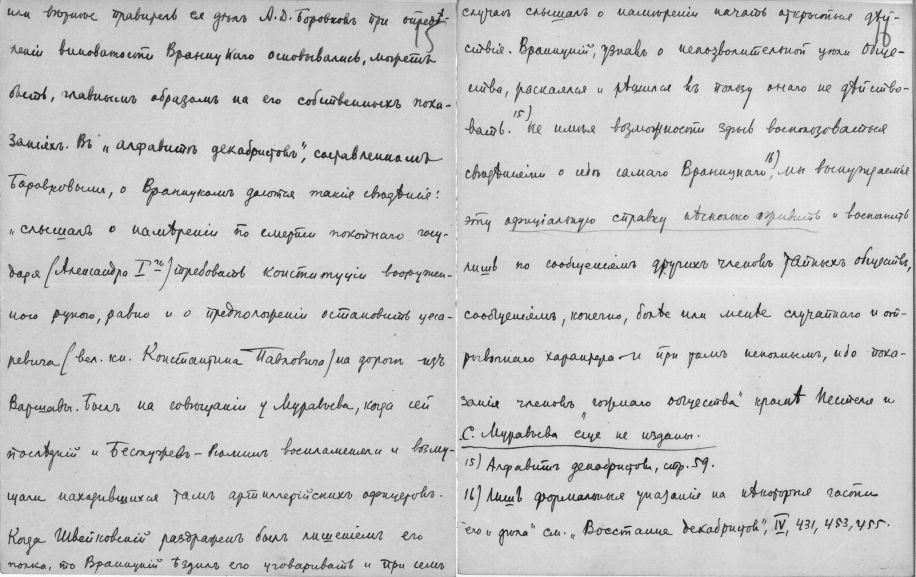 или вѣрнѣе правителя ея дѣлъ А. Д. Боровковъ при опредѣ-
15
леніи виноватости Враницкаго основывались, можетъ
быть, главнымъ образомъ на его собственныхъ пока-
заніяхъ. Въ „алфавитѣ декабристовъ", составленномъ
Боровковымъ, о Враницкомъ даются такія свѣдѣнія:
„слышалъ о намѣреніи по смерти покойнаго госу-
даря (Александра I го) требовать конституціи вооружен-
ною рукою, равно и о предположеніи остановить цеса-
ревича (вел. кн. Константина Павловича) на дорогѣ изъ
Варшавы. Былъ на совѣщаніи у Муравьева, когда сей
послѣдній и Бестужевъ-Рюминъ воспламеняли и возму-
щали находившихся тамъ артиллерійскихъ офицеровъ.
Когда Швейковскій раздраженъ былъ лишеніемъ его
полка, то Враницкій ѣздилъ его уговаривать и при семъ
случаѣ слышалъ о намѣреніи начать открытыя дѣй-
16
ствія. Враницкій, узнавъ о непозволительной цѣли обще-
ства, раскаялся и рѣшился въ пользу онаго не дѣйство-
вать. 15) Не имѣя возможности здѣсь воспользоваться
свѣдѣніями о себѣ самаго Враницкаго 16), мы вынуждены
эту официальную справку нѣсколько оживить и восполнить
лишь по сообщеніямъ другихъ членовъ тайныхъ обществъ,
сообщеніямъ, конечно, болѣе или менѣе случайнаго и от-
рывочнаго характера и при томъ неполнымъ, ибо пока-
занія членовъ „южнаго общества" кромѣ Пестеля и
С. Муравьева еще не изданы.
15) Алфавитъ декабристовъ, стр. 59.
16) Лишь формальныя указанія на нѣкоторыя части
его „дѣла" см. „Восстание декабристов", IV, 431, 453, 455.